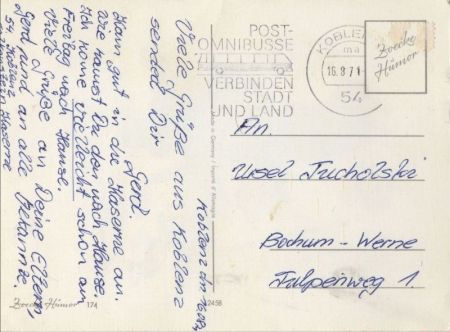 POST-
OMNIBUSSE
VERBINDEN
STADT
UND LAND
KOBLENZ
ma
16.8.71
54
Zwecke
Humor
An.
Ursel Tucholski
Bochum-Werne
Tulpenweg 1.
Koblenz den 16.08.
Viele Grüße aus Koblenz
sendet Dir
Gerd.
Kann gut in die Kaserne an.
Wie kamst Du den nach Hause.
Ich kome vielleicht schon am
Freitag nach Hause.
Viele Grüße an Deine Eltern,
Gerd und an alle Bekannte.
54 Koblenz
Kaserne
Humor 174
2458